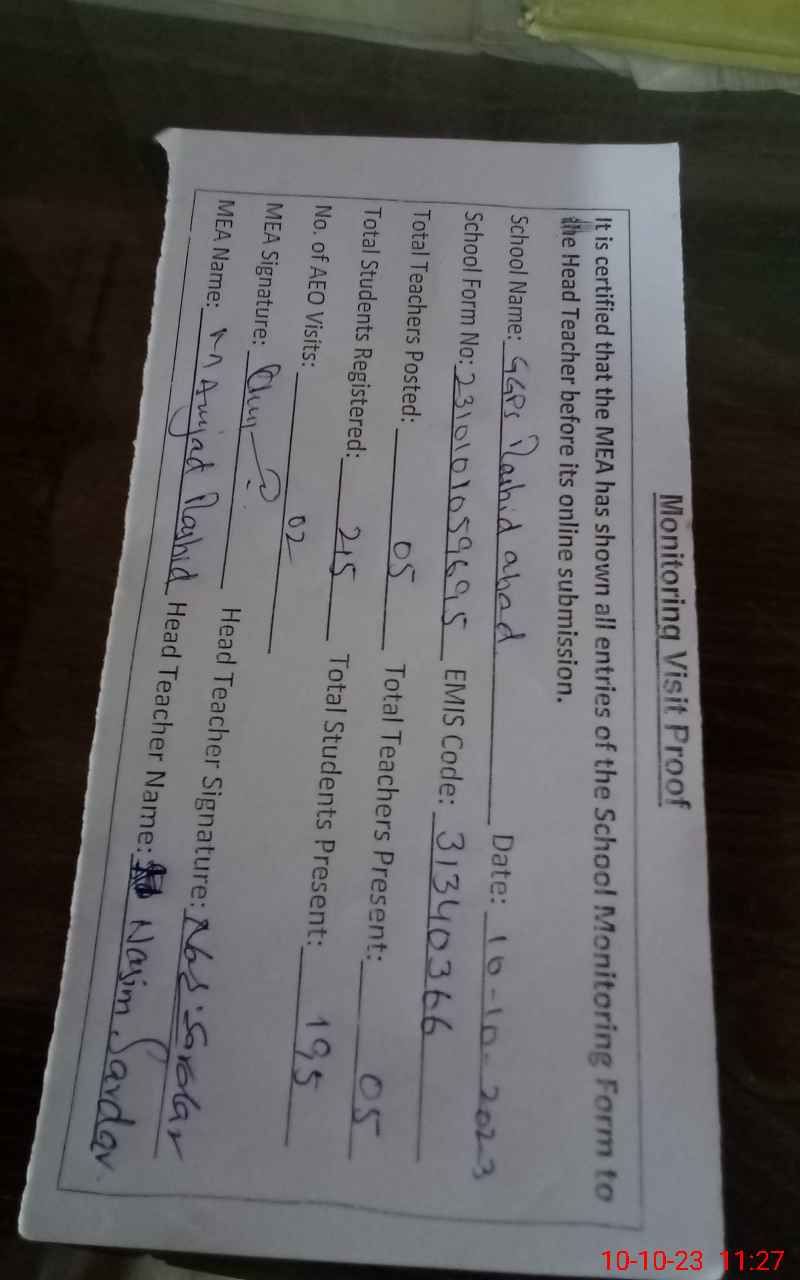 Monitoring Visit Proof
It is certified that the MEA has shown all entries of the School Monitoring Form to
the Head Teacher before its online submission.
School Name: GGPS Rashid abad Date: 10-10-2023
School Form No: 2310101059695 EMIS Code: 31340366
Total Teachers Posted: 05 Total Teachers Present: 05
Total Students Registered: 215 Total Students Present: 195
No. of AEO Visits: 02
MEA Signature: Head Teacher Signature:
MEA Name: M Amjad Rashid Head Teacher Name: Nasim Sardar.
10-10-23 11:27